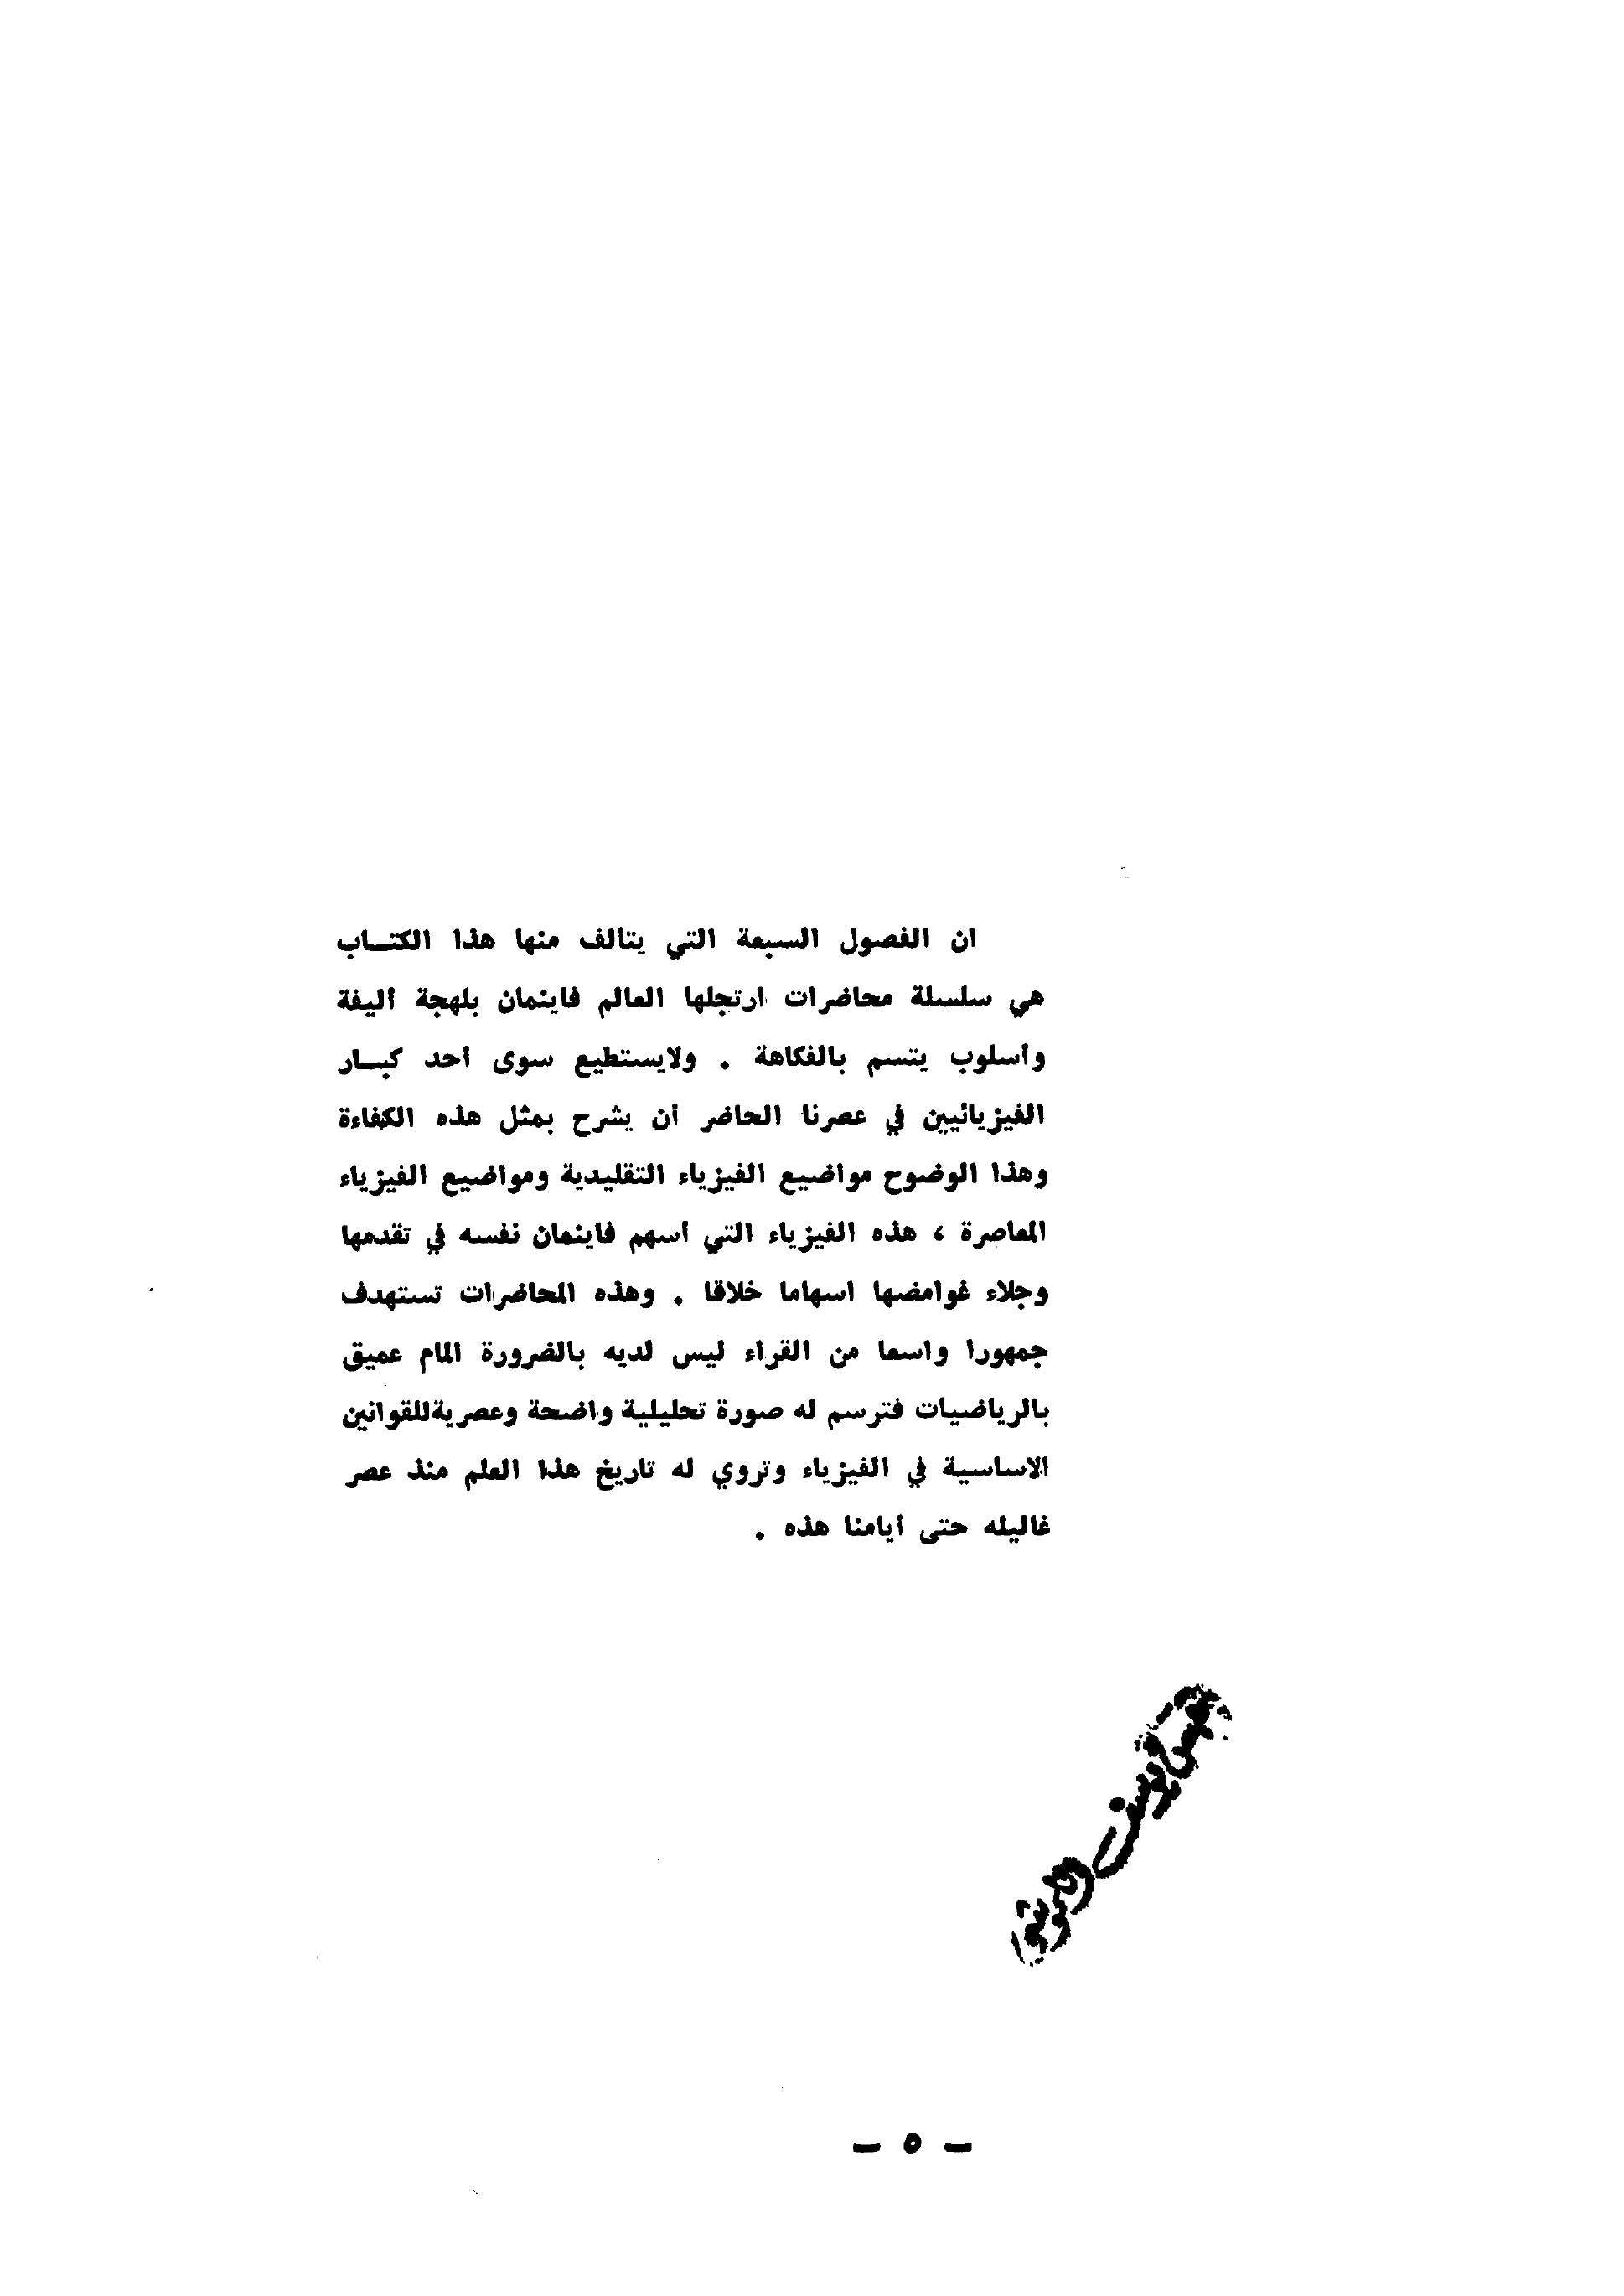 ان الفصول السبعة التي يتألف منها هذا الكتــاب
هي سلسلة محاضرات ارتجلها العالم فاينمان بلهجة أليفة
وأسلوب يتسم بالفكاهة . ولايستطيع سوى أحد كبــار
الفيزيائيين في عصرنا الحاضر أن يشرح بمثل هذه الكفاءة
وهذا الوضوح مواضيع الفيزياء التقليدية ومواضيع الفيزياء
المعاصرة ، هذه الفيزياء التي أسهم فاينمان نفسه في تقدمها
وجلاء غوامضها اسهاما خلاقا . وهذه المحاضرات تستهدف
جمهورا واسعا من القراء ليس لديه بالضرورة المام عميق
بالرياضيات فترسم له صورة تحليلية واضحة وعصرية للقوانين
الاساسية في الفيزياء وتروي له تاريخ هذا العلم منذ عصر
غاليله حتى أيامنا هذه .
– ٥ –